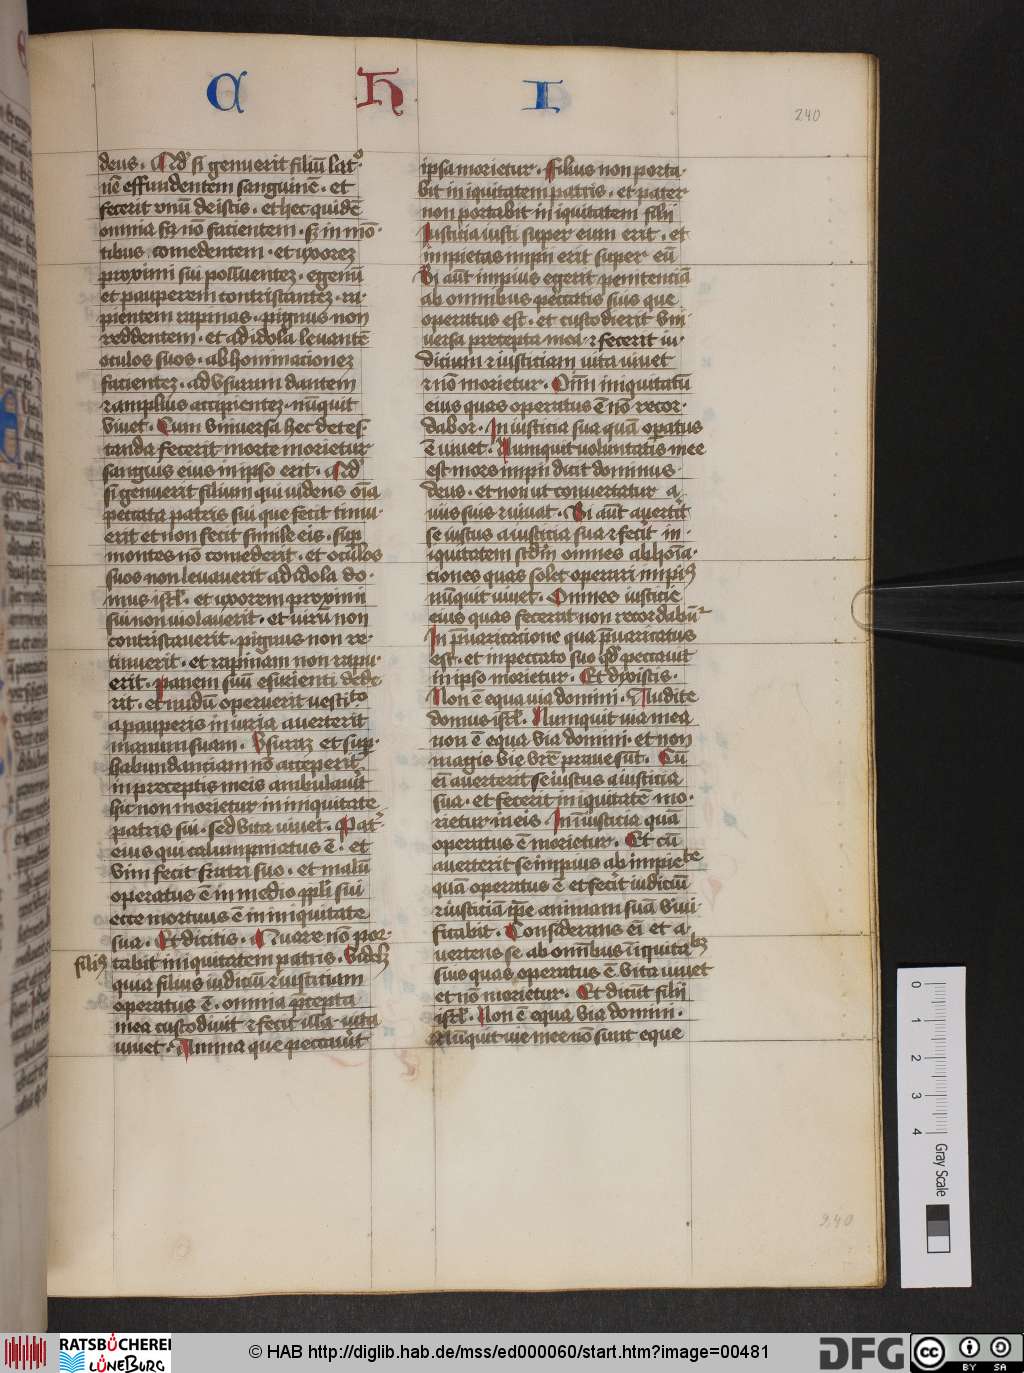 C H I
240
deus. Qd' si genuerit filiū lat°
nē effundentem sanguinē. et
fecerit vnū de istis. et hec quidē
omnia sꝫ nō facientem. sꝫ in mō-
tibus comedentem. et vxoreꝫ
proximi sui polluenteꝫ. egenū
et pauperem contristanteꝫ. ra-
pientem rapinas. pignus non
reddentem. et ad idola levantē
oculos suos. abhominacioneꝫ
facienteꝫ. ad vsuram dantem
⁊ amplius accipienteꝫ. nūquit
vivet. Cum vniversa hec detes
tanda fecerit morte morietur
sanguis eius in ipso erit. Qd'
si genuerit filium qui videns oīa
peccata patris sui que fecit timu-
erit et non fecit simile eis. sup
montes nō comederit. et oculos
suos non levaverit ad idola do-
mus isrl. et vxorem proximi
sui non violaverit. et virū non
contristaverit. pignus non re-
tinuerit. et rapinam non rapu-
erit. panem suū esurienti dede
rit. et nudū operuerit vestito
a pauperis in iuria averterit
manum suam. Vsuraꝫ et sup-
habundanciam nō acceperit.
in preceptis meis ambulav'it
hic non morietur in iniquitate
patris sui. sed vita vivet. Pat'
eius qui calumpniatus ē. et
vim fecit fratri suo. et malū
operatus ē in medio ppl'i sui
ecce mortuus ē in iniquitate
sua. Et dicitis. Quare nō por-
filiꝰ tabit iniquitatem patris. Videlꝫ
quia filius iudiciū ⁊ iusticiam
operatus ē. omnia p̄cepta
mea custodivit ⁊ fecit illa. vita
vivet. Anima que peccav'it
ipsa morietur. Filius non porta-
bit in iquitatem patris. et pater
non portabit in iquitatem filii
Iusticia iusti super eum erit. et
impietas impii erit super eū
Si aūt impius egerit penitenciā
ab omnibus peccatis suis que
operatus est. et custodierit vni
versa precepta mea. ⁊ fecerit iu-
dicium ⁊ iusticiam vita vivet
⁊ nō morietur. Om̄i iniquitatū
eius quas operatus ē nō recor-
dabor. In iusticia sua quā opatus
ē vivet. Numquit voluntatis mee
est mors impii dicit dominus
deus. et non ut convertatur a
viis suis ⁊ vivat. Si aūt avert'it
se iustus a iusticia sua ⁊ fecit in-
iquitatem scdm omnes abhoīa-
ciones quas solet operari impiꝰ
nūquit vivet. Omnes iusticie
eius quas fecerat non recordabūr
In p̄varicatione qua p̄varicatus
est. et in peccato suo qd' peccavit
in ipso morietur. Et dixistis.
Non ē equa via domini. Audite
domus isrl. Numquit via mea
non ē equa via domini. et non
magis vie vrē prave sūt. Cū
eī averterit se iustus a iusticia
sua. et fecerit in iquitatē mo-
rietur in eis. In iusticia quā
operatus ē morietur. Et cū
averterit se impius ab impiete
quā operatus ē et fec'it iudiciū
⁊ iusticiā ip̄e animam suā vivi-
ficabit. Considerans eī et a-
vertens se ab omībus iniquitabꝫ
suis quas operatus ē. vita vivet
et nō morietur. Et dicūt filii
isrl. Non ē equa via domini.
Nūquit vie mee nō sunt eque
240
0 1 2 3 4 Gray Scale
RATSBÜCHEREI
LÜNEBURG
© HAB http://diglib.hab.de/mss/ed000060/start.htm?image=00481
DFG
cc BY SA